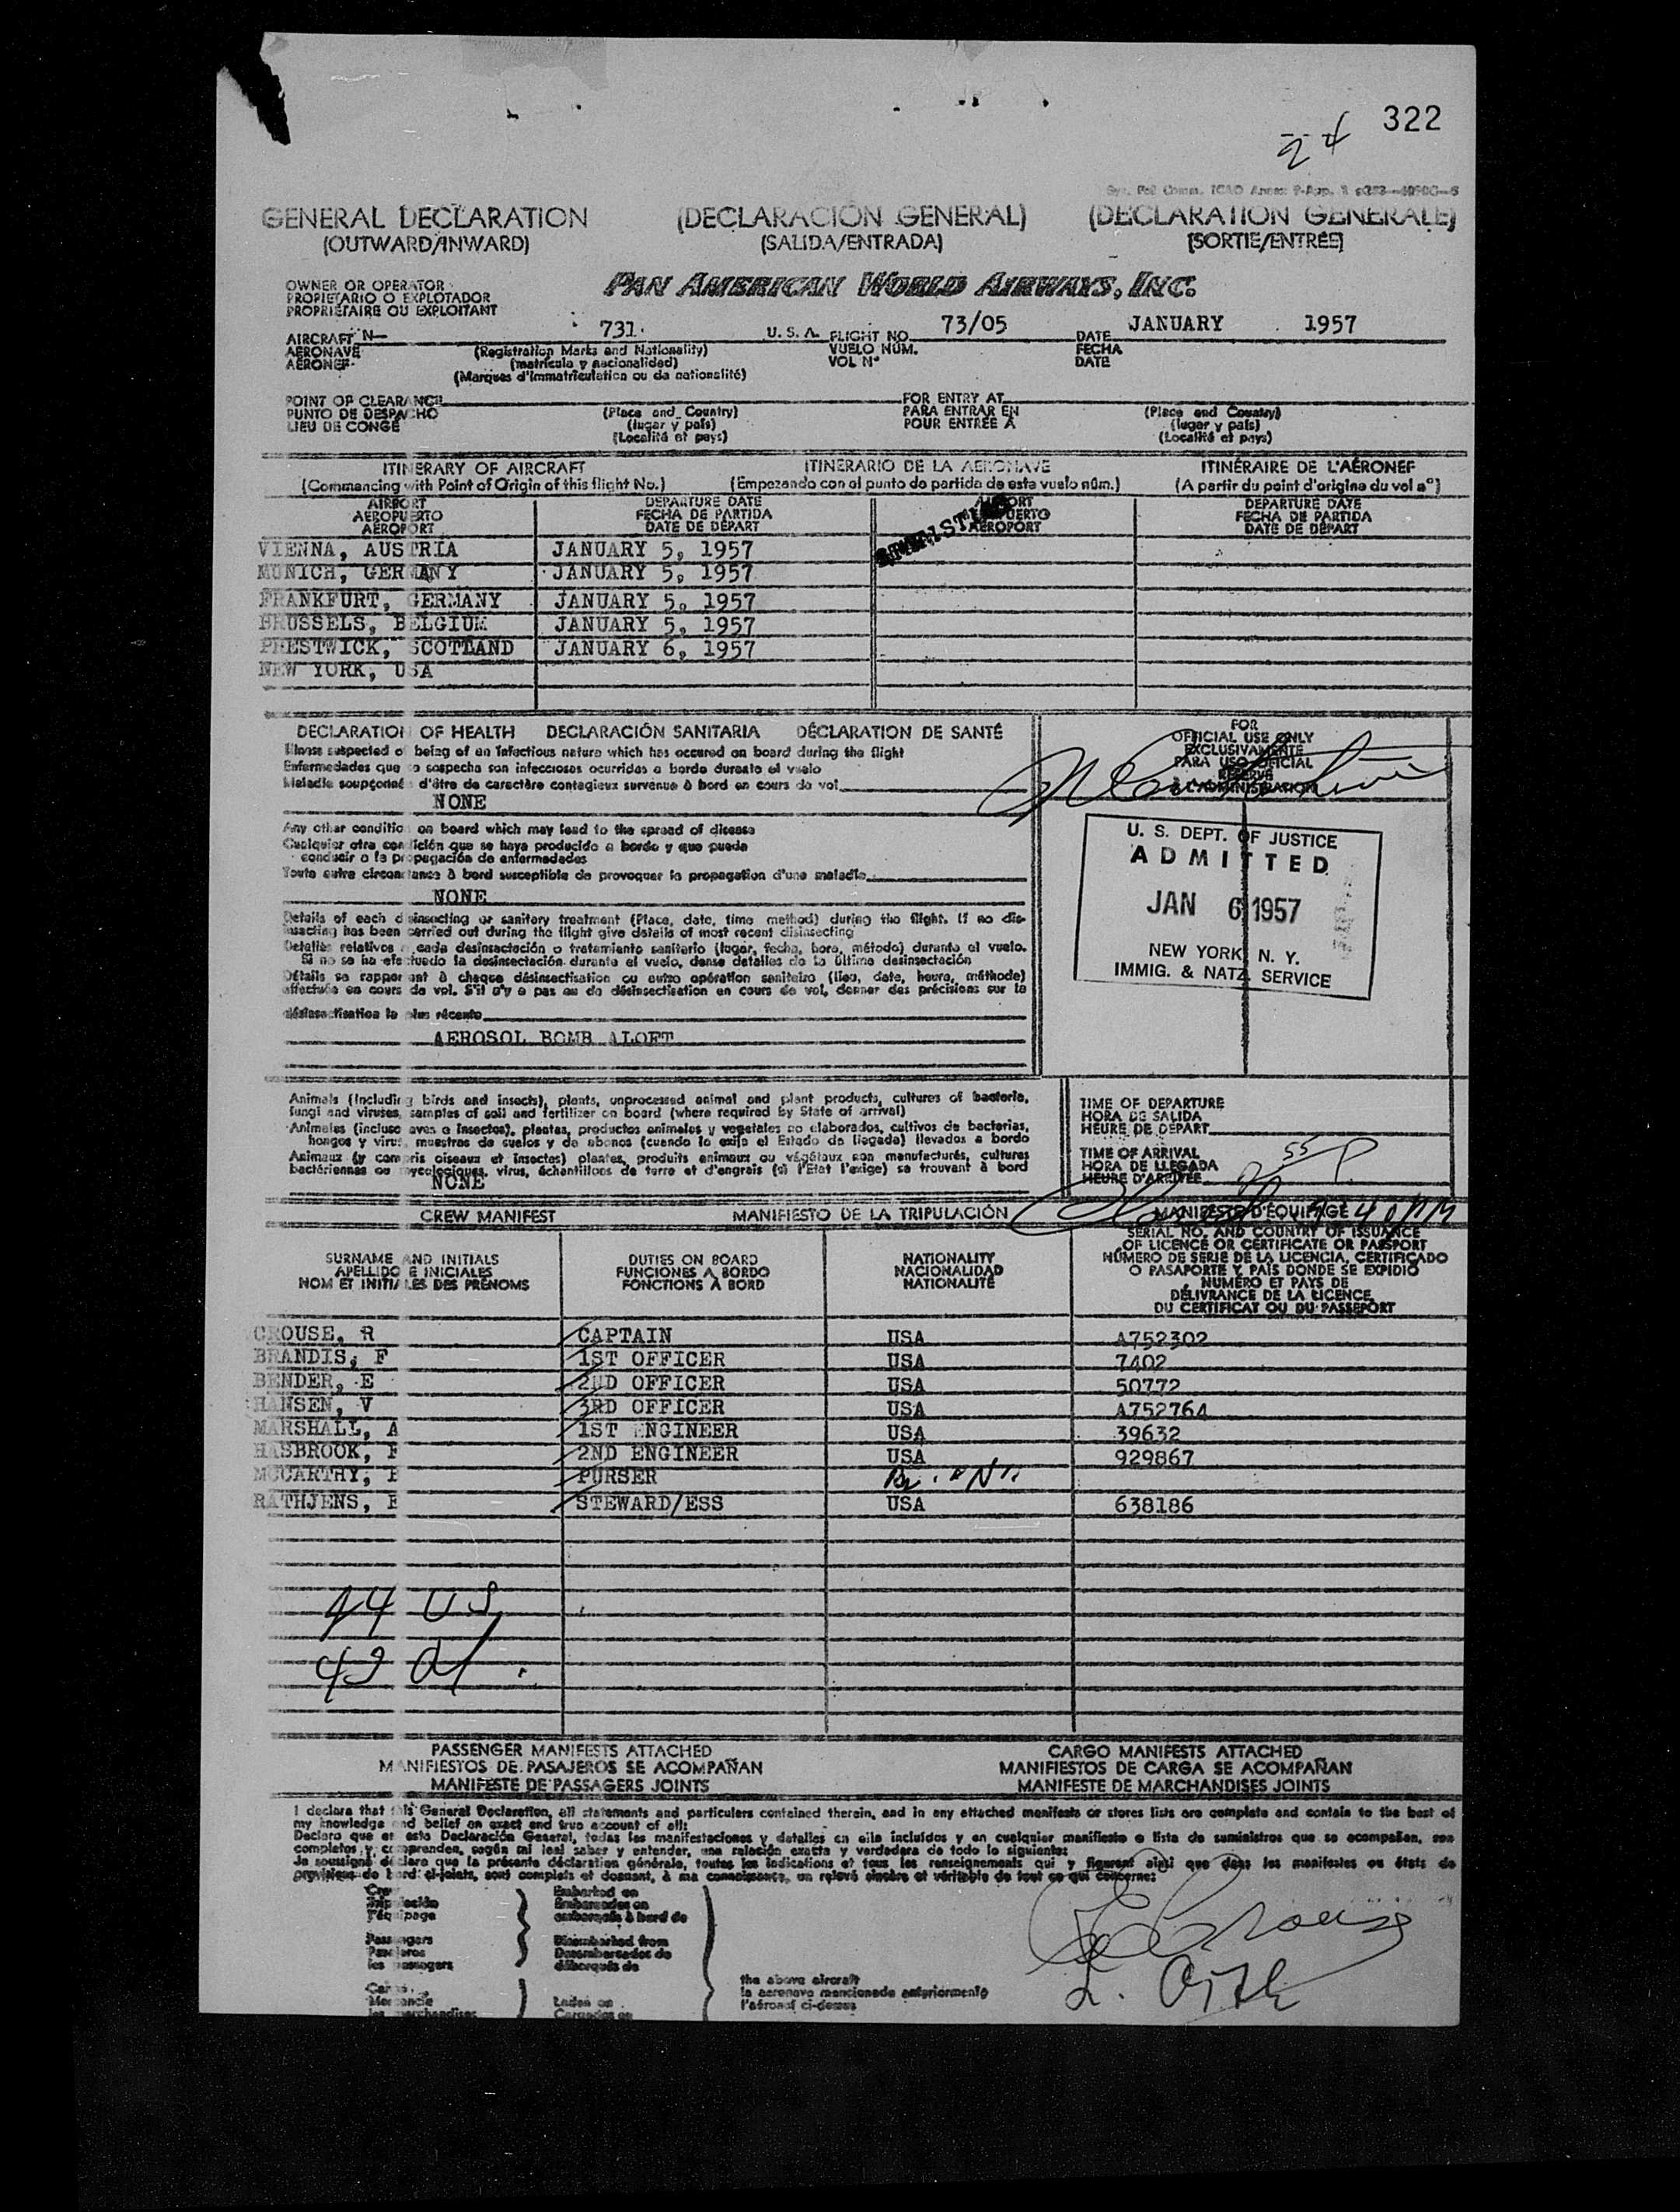 322
24
GENERAL DECLARATION (DECLARACIÓN GENERAL) (DECLARATION GENERALE)
(OUTWARD/INWARD) (SALIDA/ENTRADA) (SORTIE/ENTRÉE)
OWNER OR OPERATOR
PROPIETARIO O EXPLOTADOR
PROPRIÉTAIRE OU EXPLOITANT
PAN AMERICAN WORLD AIRWAYS, INC.
AIRCRAFT N— 731 U. S. A. FLIGHT NO. 73/05 DATE JANUARY 1957
AERONAVE (Registration Marks and Nationality) VUELO NÚM. FECHA
AÉRONEF (matrícula y nacionalidad) VOL Nº DATE
(Marques d'immatriculation ou de nationalité)
POINT OF CLEARANCE FOR ENTRY AT
PUNTO DE DESPACHO (Place and Country) PARA ENTRAR EN (Place and Country)
LIEU DE CONGÉ (lugar y país) POUR ENTRÉE À (lugar y país)
(Localité et pays) (Localité et pays)
ITINERARY OF AIRCRAFT ITINERARIO DE LA AERONAVE ITINÉRAIRE DE L'AÉRONEF
(Commencing with Point of Origin of this flight No.) (Empezando con el punto de partida de este vuelo núm.) (A partir du point d'origine du vol nº)
AIRPORT DEPARTURE DATE AIRPORT DEPARTURE DATE
AEROPUERTO FECHA DE PARTIDA AEROPUERTO FECHA DE PARTIDA
AÉROPORT DATE DE DÉPART AÉROPORT DATE DE DÉPART
VIENNA, AUSTRIA JANUARY 5, 1957
MUNICH, GERMANY JANUARY 5, 1957
FRANKFURT, GERMANY JANUARY 5, 1957
BRUSSELS, BELGIUM JANUARY 5, 1957
PRESTWICK, SCOTLAND JANUARY 6, 1957
NEW YORK, USA
DECLARATION OF HEALTH DECLARACIÓN SANITARIA DÉCLARATION DE SANTÉ
Illness suspected of being of an infectious nature which has occured on board during the flight
Enfermedades que se sospecha son infecciosas ocurridas a bordo durante el vuelo
Maladie soupçonnée d'être de caractère contagieux survenue à bord en cours de vol
NONE
Any other condition on board which may lead to the spread of disease
Cualquier otra condición que se haya producido a bordo y que pueda
conducir a la propagación de enfermedades
Toute autre circonstance à bord susceptible de provoquer la propagation d'une maladie
NONE
Details of each disinsecting or sanitary treatment (Place, date, time method) during the flight. If no dis-
insecting has been carried out during the flight give details of most recent disinsecting
Detalles relativos a cada desinsectación o tratamiento sanitario (lugar, fecha, hora, método) durante el vuelo.
Si no se ha efectuado la desinsectación durante el vuelo, dense detalles de la última desinsectación
Détails se rapportant à chaque désinsectisation ou autre opération sanitaire (lieu, date, heure, méthode)
effectuée en cours de vol. S'il n'y a pas eu de désinsectisation en cours de vol, donner des précisions sur la
désinsectisation la plus récente
AEROSOL BOMB ALOFT
FOR
OFFICIAL USE ONLY
EXCLUSIVAMENTE
PARA USO OFICIAL
RÉSERVÉ
À L'ADMINISTRATION
U. S. DEPT. OF JUSTICE
ADMITTED
JAN 6 1957
NEW YORK, N. Y.
IMMIG. & NATZ. SERVICE
Animals (including birds and insects), plants, unprocessed animal and plant products, cultures of bacteria,
fungi and viruses, samples of soil and fertilizer on board (where required by State of arrival)
Animales (incluso aves e insectos), plantas, productos animales y vegetales no elaborados, cultivos de bacterias,
hongos y virus, muestras de suelos y de abonos (cuando lo exija el Estado de llegada) llevados a bordo
Animaux (y compris oiseaux et insectes) plantes, produits animaux ou végétaux non manufacturés, cultures
bactériennes ou mycologiques, virus, échantillons de terre et d'engrais (si l'Etat l'exige) se trouvant à bord
NONE
TIME OF DEPARTURE
HORA DE SALIDA
HEURE DE DÉPART
TIME OF ARRIVAL
HORA DE LLEGADA
HEURE D'ARRIVÉE
CREW MANIFEST MANIFIESTO DE LA TRIPULACIÓN MANIFESTE D'ÉQUIPAGE
SURNAME AND INITIALS DUTIES ON BOARD NATIONALITY SERIAL NO. AND COUNTRY OF ISSUANCE
APELLIDO E INICIALES FUNCIONES A BORDO NACIONALIDAD OF LICENCE OR CERTIFICATE OR PASSPORT
NOM ET INITIALES DES PRÉNOMS FONCTIONS À BORD NATIONALITÉ NÚMERO DE SERIE DE LA LICENCIA, CERTIFICADO
O PASAPORTE Y PAÍS DONDE SE EXPIDIÓ
NUMÉRO ET PAYS DE
DÉLIVRANCE DE LA LICENCE,
DU CERTIFICAT OU DU PASSEPORT
CROUSE, R CAPTAIN USA A752302
BRANDIS, F 1ST OFFICER USA 7402
BENDER, E 2ND OFFICER USA 50772
HANSEN, V 3RD OFFICER USA A752764
MARSHALL, A 1ST ENGINEER USA 39632
HASBROOK, F 2ND ENGINEER USA 929867
MCCARTHY, PURSER
RATHJENS, STEWARD/ESS USA 638186
44 US
PASSENGER MANIFESTS ATTACHED CARGO MANIFESTS ATTACHED
MANIFIESTOS DE PASAJEROS SE ACOMPAÑAN MANIFIESTOS DE CARGA SE ACOMPAÑAN
MANIFESTE DE PASSAGERS JOINTS MANIFESTE DE MARCHANDISES JOINTS
I declare that this General Declaration, all statements and particulars contained therein, and in any attached manifests or stores lists are complete and contain to the best of
my knowledge and belief an exact and true account of all:
Declaro que en esta Declaración General, todas las manifestaciones y detalles en ella incluídos y en cualquier manifiesto o lista de suministros que se acompañen, son
completos y comprenden, según mi leal saber y entender, una relación exacta y verdadera de todo lo siguiente:
Je soussigné déclare que la présente déclaration générale, toutes les indications et tous les renseignements qui y figurent ainsi que dans les manifestes ou états de
provisions de bord ci-joints, sont complets et donnent, à ma connaissance, un relevé sincère et véritable de tout ce qui concerne:
Crew Embarked on
Tripulación Embarcados en
l'équipage embarqués à bord de
Passengers Disembarked from
Pasajeros Desembarcados de
les passagers débarqués de
the above aircraft
la aeronave mencionada anteriormente
l'aéronef ci-dessus
Cargo Laden on
Mercancía Cargados en
les marchandises